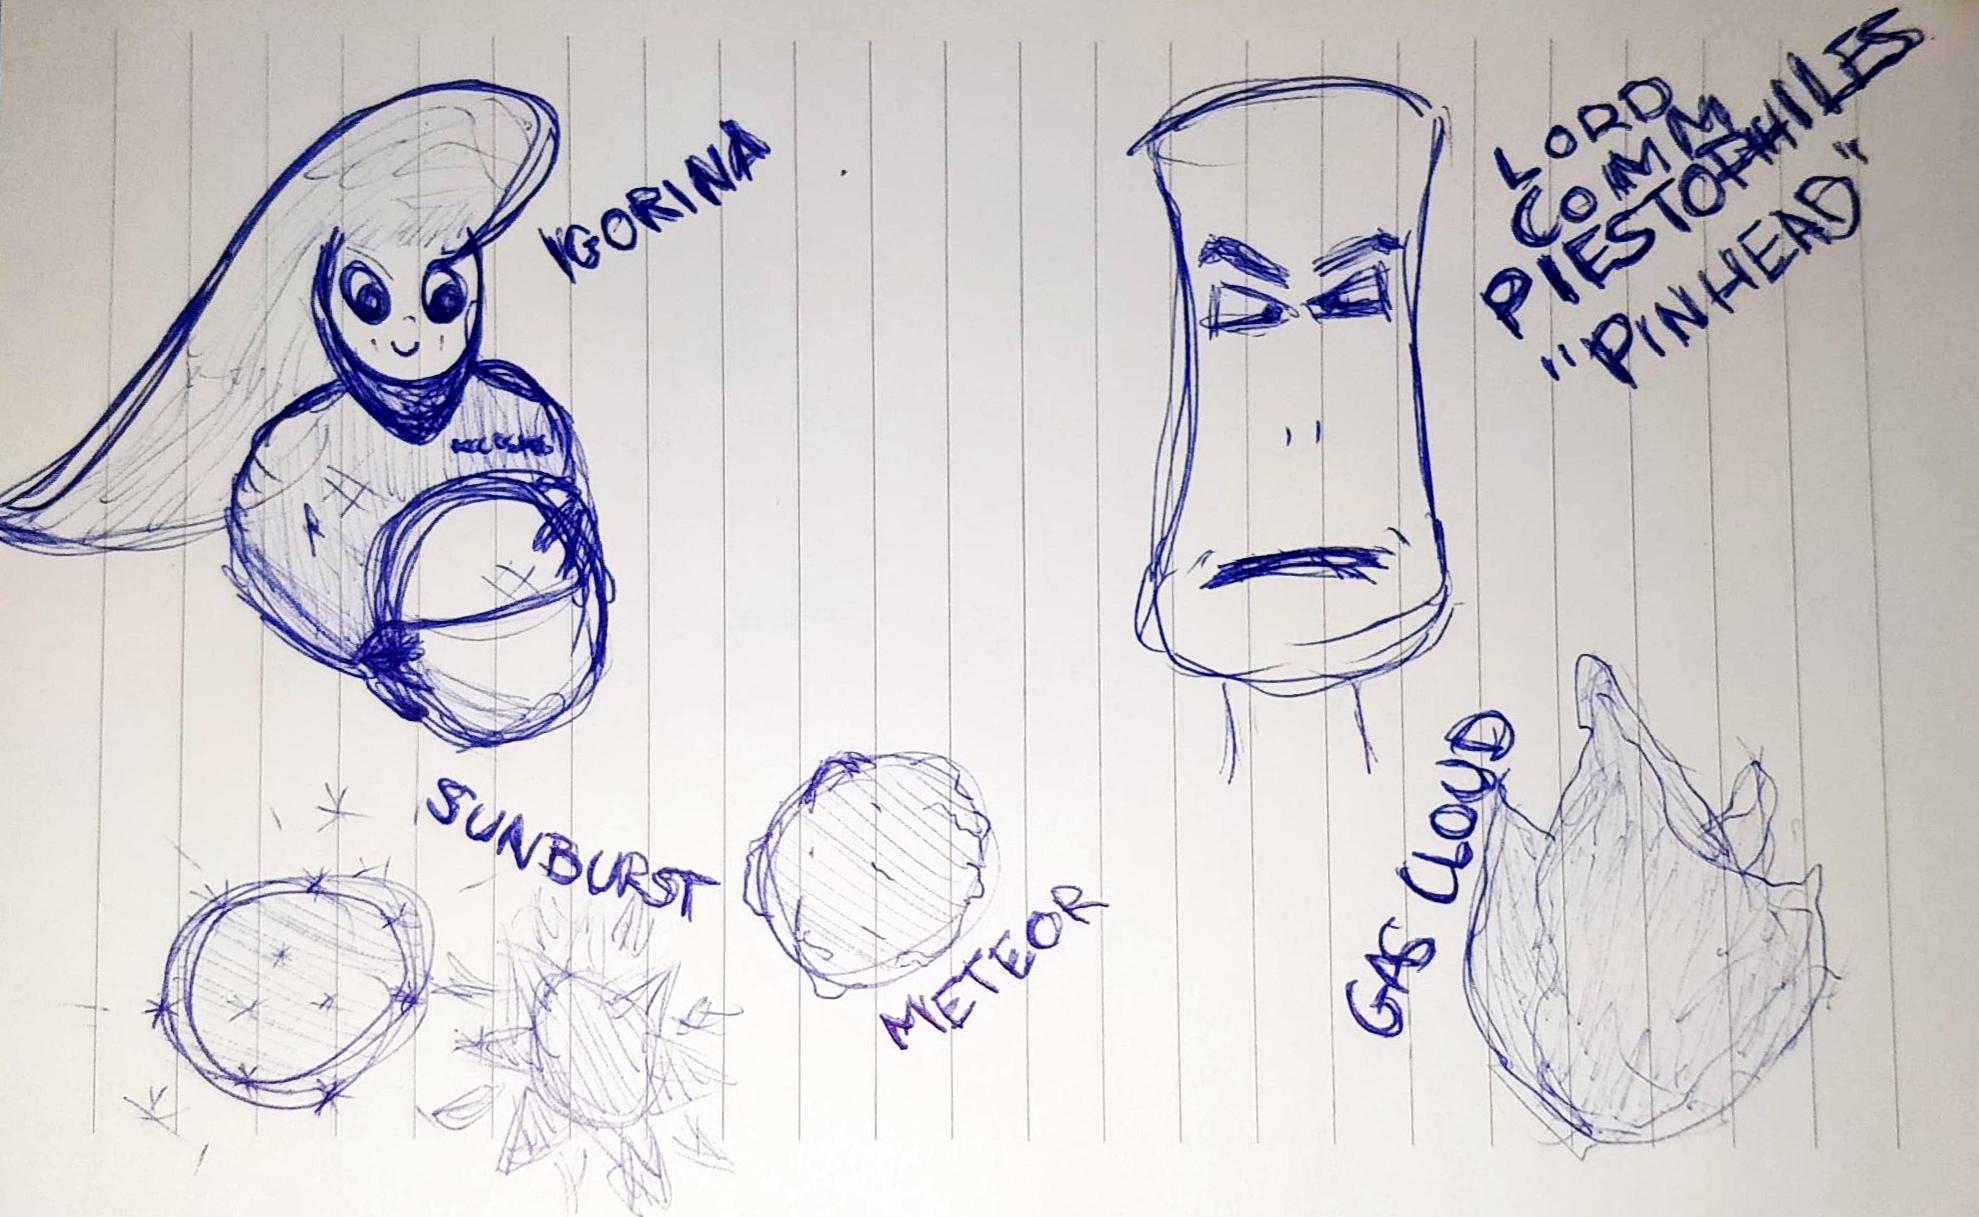 IGORINA
LORD
COMM
PIESTOPHILES
"PINHEAD"
SUNBURST
METEOR
GAS CLOUD